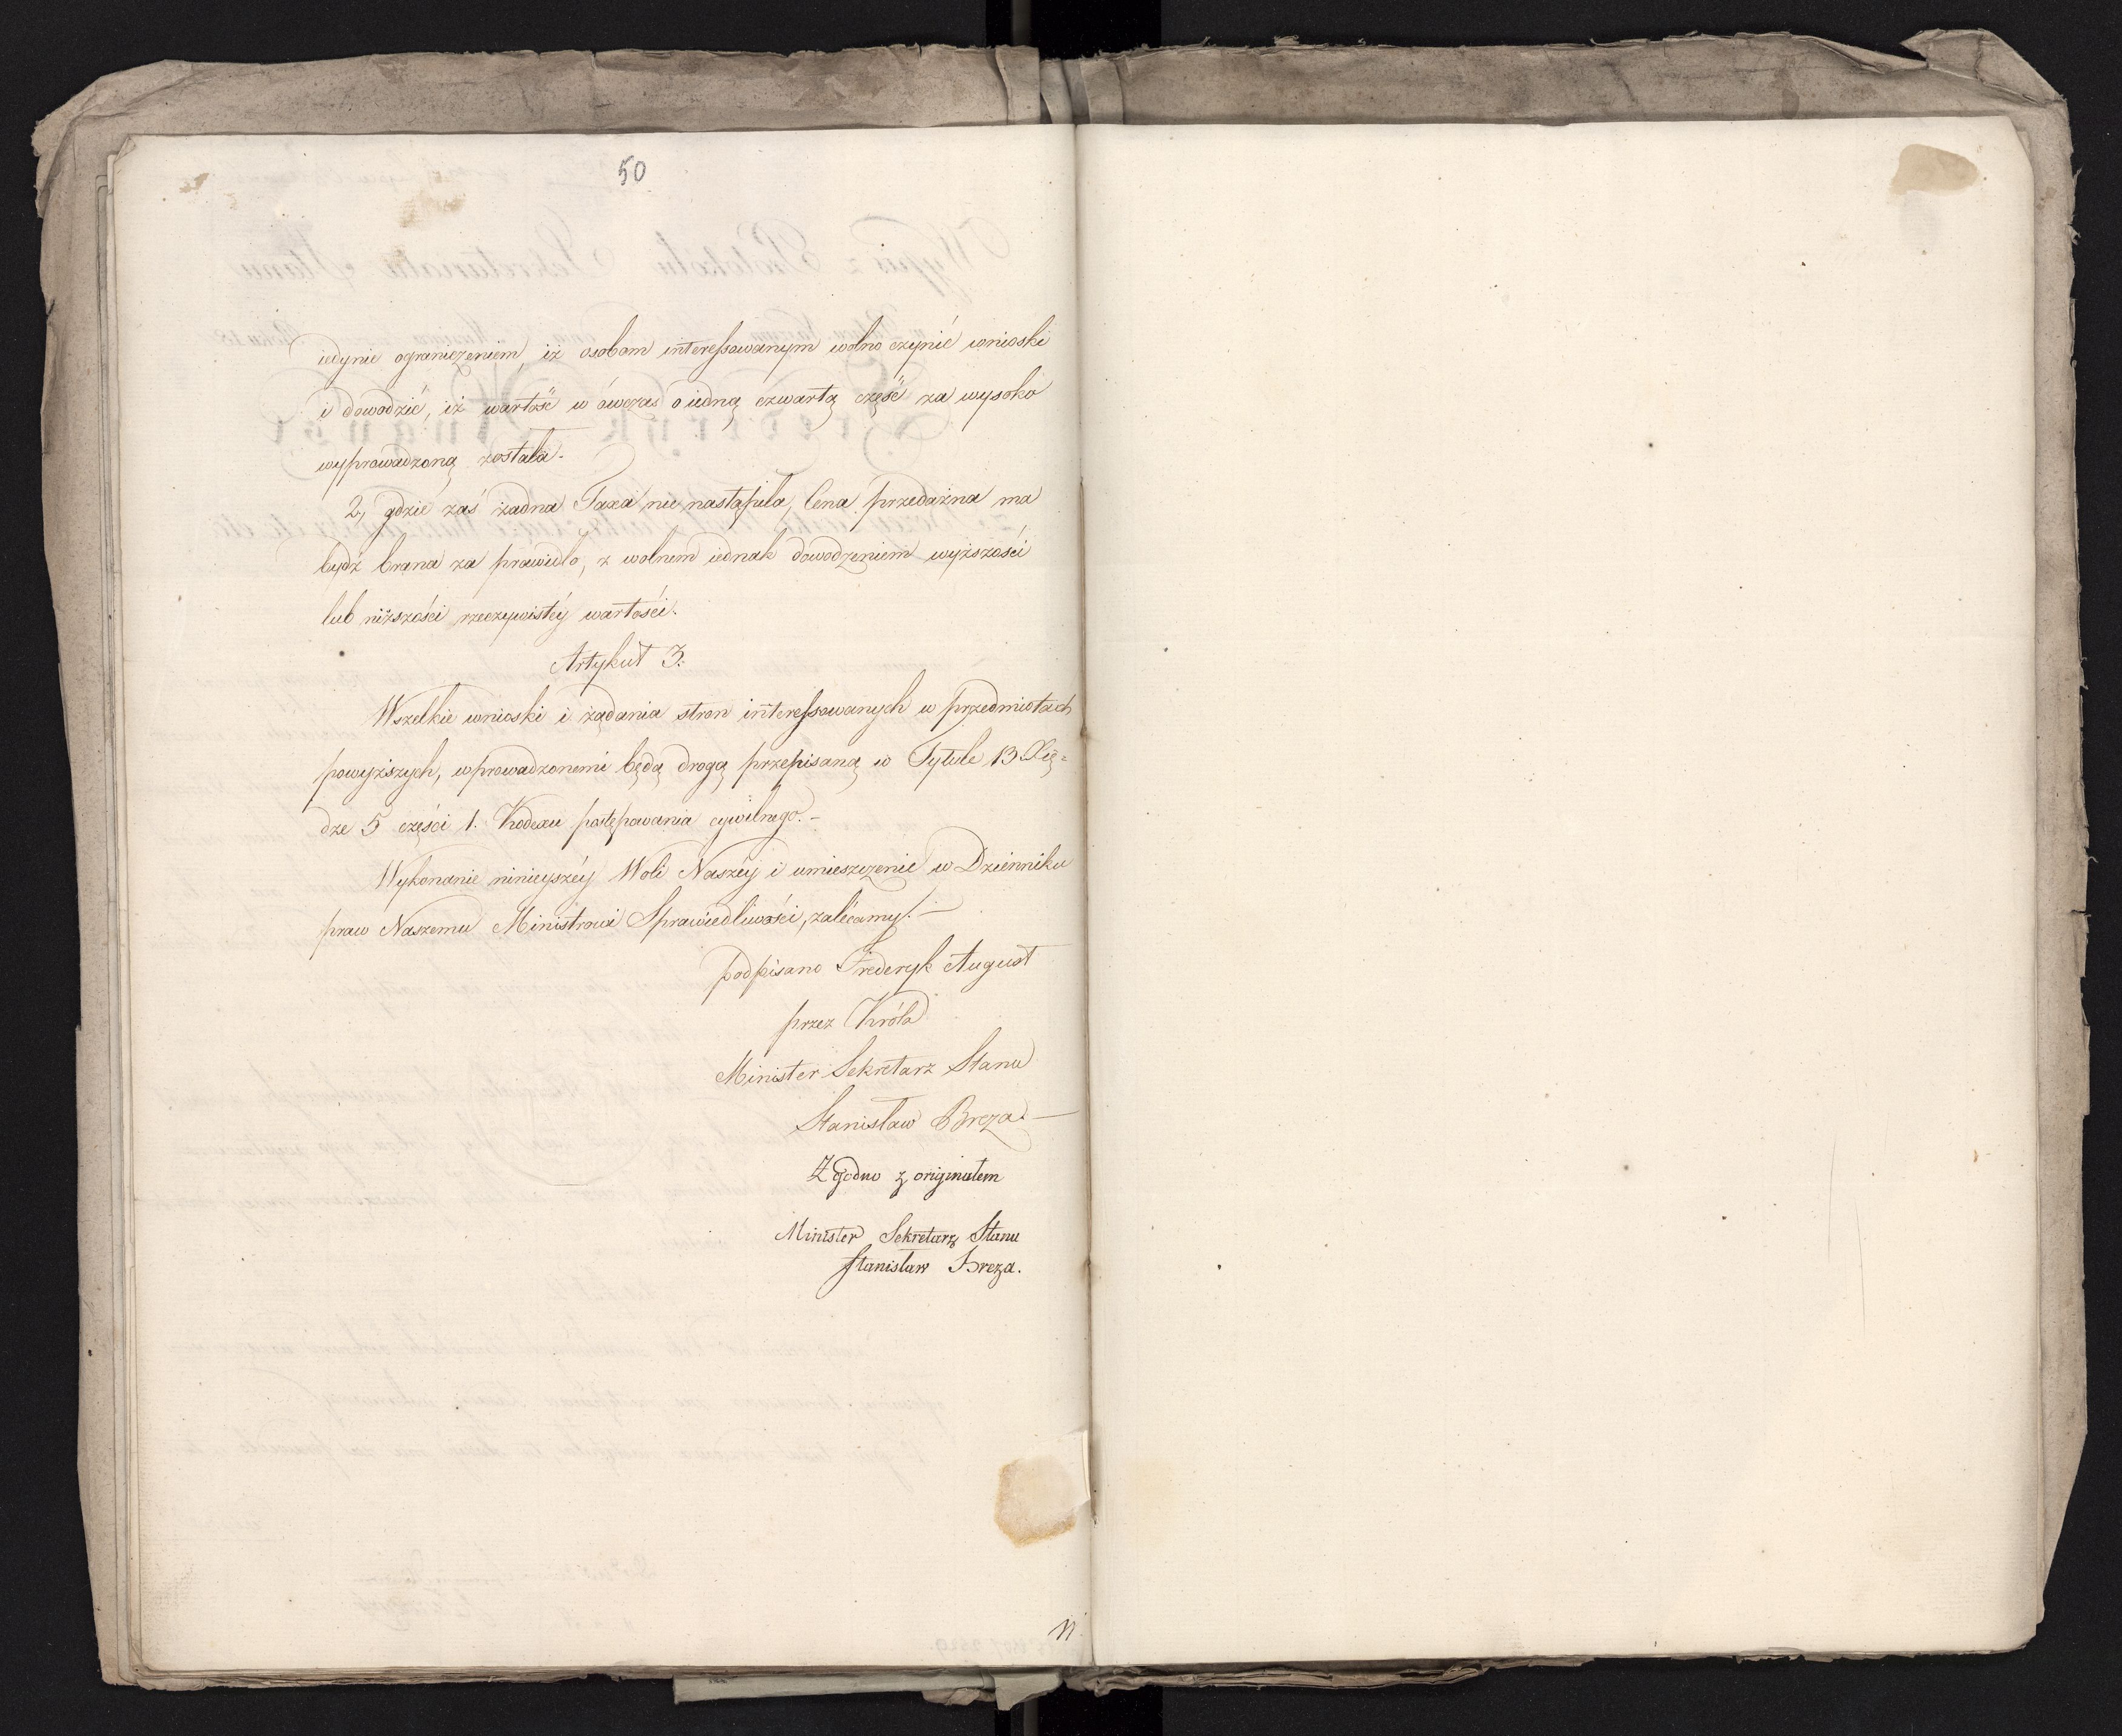 50
iedynie ograniczeniem, iż osobom interessowanym wolno czynić wnioski
i dowodzić, iż wartość w ówczas o iedną czwartą część za wysoko
wyprowadzoną została.
2, gdzie zaś żadna Taxa nie nastąpiła, Cena przedażna ma
bydź brana za prawidło, z wolnem iednak dowodzeniem wyższości
lub niższości rzeczywistéy wartości.
Artykuł 3.
Wszelkie wnioski i żądania stron interessowanych w przedmiotach
powyższych, wprowadzonemi będą drogą przepisaną w Tytule 13 Xię=
dze 5 części 1. Kodexu postępowania cywilnego.—
Wykonanie ninieyszéy Woli Naszéy i umieszczenie w Dzienniku
praw Naszemu Ministrowi Sprawiedliwości, zalécamy.—
podpisano Frederyk August
przez Króla
Minister Sekretarz Stanu
Stanisław Breza.—
Zgodno z originałem
Minister Sekretarz Stanu
Stanisław Breza.